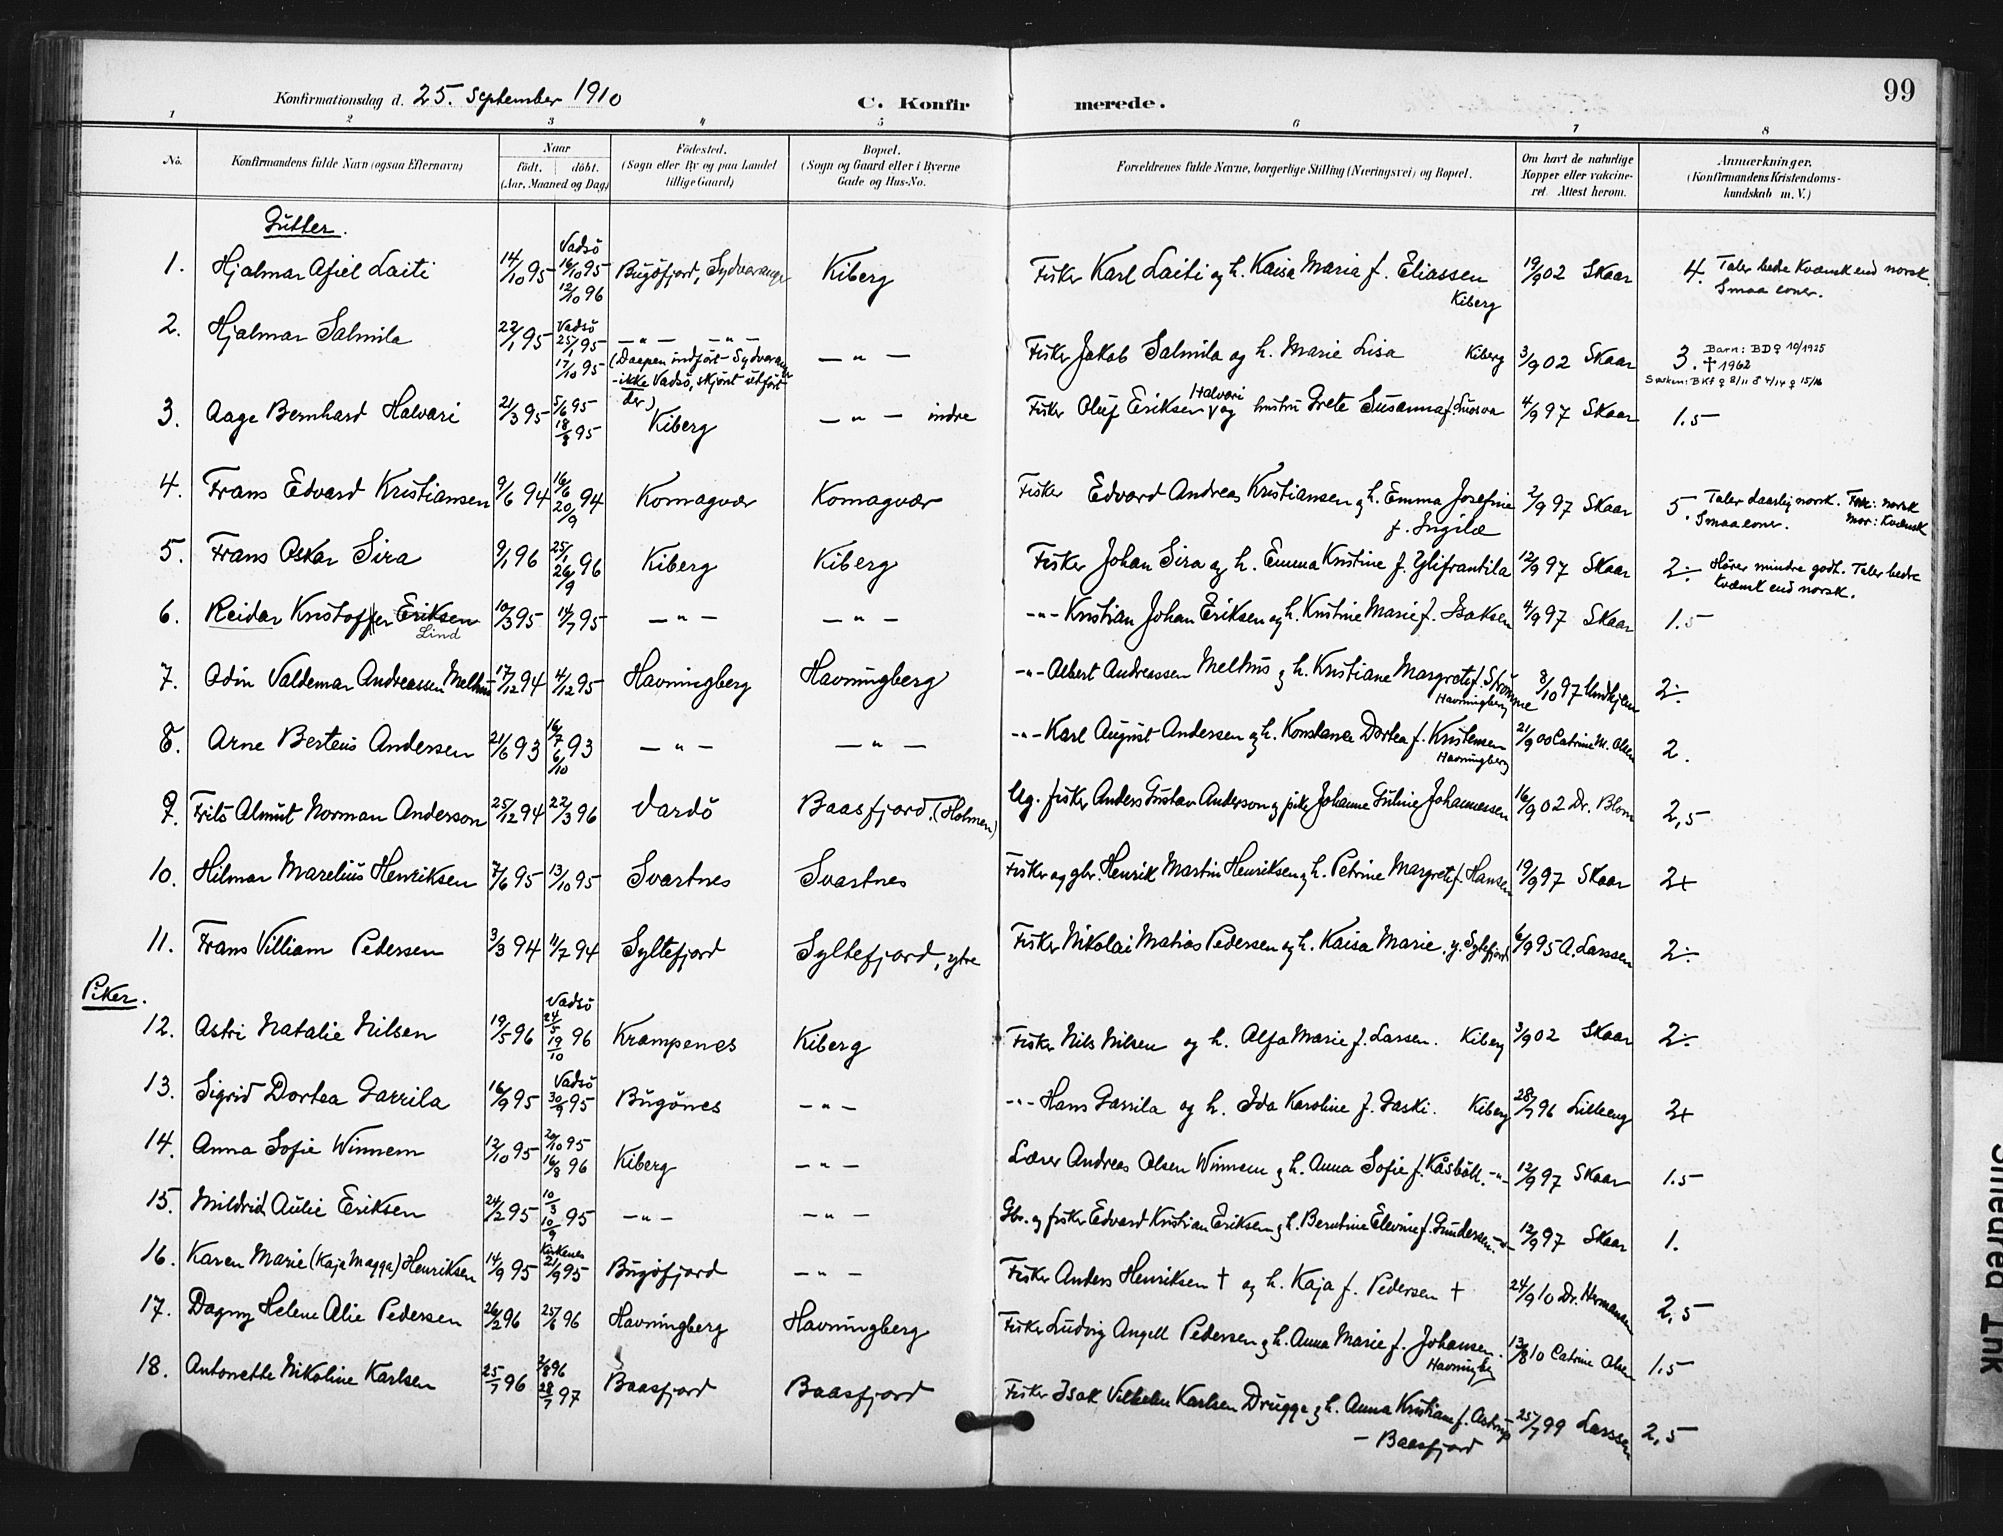 99
Konfirmationsdag d. 25. September 1910
C. Konfirmerede.
1 2 3 4 5 6 7 8
No.
Konfirmandens fulde Navn (ogsaa Efternavn)
Naar
født. døbt.
(Aar, Maaned og Dag)
Fødested.
(Sogn eller By og paa Landet
tillige Gaard)
Bopæl.
(Sogn og Gaard eller i Byerne
Gade og Hus-No.
Forældrenes fulde Navne, borgerlige Stilling (Næringsvei) og Bopæl.
Om havt de naturlige
Kopper eller vakcine-
ret. Attest herom.
Anmærkninger.
(Konfirmandens Kristendoms-
kundskab m. V.)
Gutter.
1. Hjalmar Afiel Laiti 14/10 95 Vadsö 16/10 95 12/10 96 Bugöfjord, Sydvaranger Kiberg Fisker Karl Laiti og h. Kaisa Maria f. Eliassen Kiberg 19/9 02 Skaar 4. Taler bedre Kvænsk end norsk. Smaa evner.
2. Hjalmar Salmila 22/1 95 Vadsö 25/1 95 17/10 95 — " — — " — (Daapen indført Sydvaranger - ikke Vadsö, skjønt utført der) — " — Fisker Jakob Salmila og h. Marie Lisa Kiberg 3/9 02 Skaar 3. Barn: BD♀ 10/1925 † 1962 Søsken: BKF ♀ 8/11 ♂ 4/14 ♀ 15/16
3. Aage Bernhard Halvari 21/3 95 5/6 95 18/8 95 Kiberg — " — indre Fisker Oluf Eriksen Halvari og hustru Grete Susanna f. Luosva 4/9 97 Skaar 1.5
4. Frans Edvard Kristiansen 9/6 94 16/6 20/9 94 Komagvær Komagvær Fisker Edvard Andreas Kristiansen og h. Emma Josefine f. Ingilæ 2/9 97 Skaar 5. Taler daarlig norsk. Far: norsk Mor: Kvænsk Smaa evner.
5. Frans Oskar Sira 9/1 96 25/1 26/9 96 Kiberg Kiberg Fisker Johan Sira og h. Emma Kristine f. Ylifrantila 12/9 97 Skaar 2÷ Hører mindre godt. Taler bedre Kvænsk end norsk.
6. Reidar Kristoffer Eriksen Lind 10/3 95 14/7 95 — " — — " — -"- Kristian Johan Eriksen og h. Kristine Marie f. Isaksen 4/9 97 Skaar 1.5
7. Odin Valdemar Andreassen Melhus 17/12 94 4/12 95 Havningberg Havningberg -"- Albert Andreassen Melhus og h. Kristiane Margrete f. Strömme Havningberg 8/10 97 Lindkjøn 2÷
8. Arne Berteus Andersen 21/6 93 16/7 6/10 93 — " — — " — -"- Karl August Andersen og h. Konstance Dortea f. Kristensen Havningberg 21/9 00 Catrine M. Olsen 2.
9. Frits Almut Norman Anderson 25/12 94 22/3 96 Vardö Baasfjord. (Holmen) Ug. fisker Anders Gustav Anderson og pike Johanne Guline Johannessen 16/9 02 Dr. Blom 2,5
10. Hilmar Marelius Henriksen 7/6 95 13/10 95 Svartnes Svartnes Fisker og gbr. Henrik Martin Henriksen og h. Petrine Margrete f. Hansen 19/9 97 Skaar 2+
11. Frans Villiam Pedersen 3/3 94 11/7 94 Syltefjord Syltefjord, ytre Fisker Nikolai Matias Pedersen og h. Kaisa Marie. y. Syltefjord 6/9 95 A. Larssen 2÷
Piker.
12. Astri Natalie Nilsen 19/5 96 Vadsö 24/5 19/10 96 Krampenes Kiberg Fisker Nils Nilsen og h. Alfa Marie f. Larsen. Kiberg 3/9 02 Skaar 2÷
13. Sigrid Dortea Garrila 16/9 95 Vadsö 30/9 95 Bugönes — " — -"- Hans Garrila og h. Ida Karoline f. Gaski. Kiberg 28/7 96 Lilleeng 2+
14. Anna Sofie Winnem 12/10 95 20/10 95 16/8 96 Kiberg — " — Lærer Andreas Olsen Winnem og h. Anna Sofie f. Kåsböll. -"- 12/9 97 Skaar 1.5
15. Mildrid Aulie Eriksen 24/2 95 10/3 10/9 95 — " — — " — Gbr. og fisker Edvard Kristian Eriksen og h. Berntine Elevine f. Gundersen. -"- 12/9 97 Skaar 1.
16. Karen Marie (Kaja Magga) Henriksen 14/9 95 Kirkenes 21/9 95 Bugöfjord — " — Fisker Anders Henriksen † og h. Kaja f. Pedersen † 24/9 10 Dr. Hermansen 2,5
17. Dagny Helene Alie Pedersen 26/2 96 25/6 96 Havningberg Havningberg Fisker Ludvig Angell Pedersen og h. Anna Marie f. Johansen. Havningberg 13/8 10 Catrine Olsen 1.5
18. Antonette Nikoline Karlsen 25/7 96 2/8 96 28/7 97 Baasfjord Baasfjord Fisker Isak Vilhelm Karlsen Drugge og h. Anna Kristiane f. Astrup — Baasfjord 25/7 99 Larssen 2,5
Smeared Ink